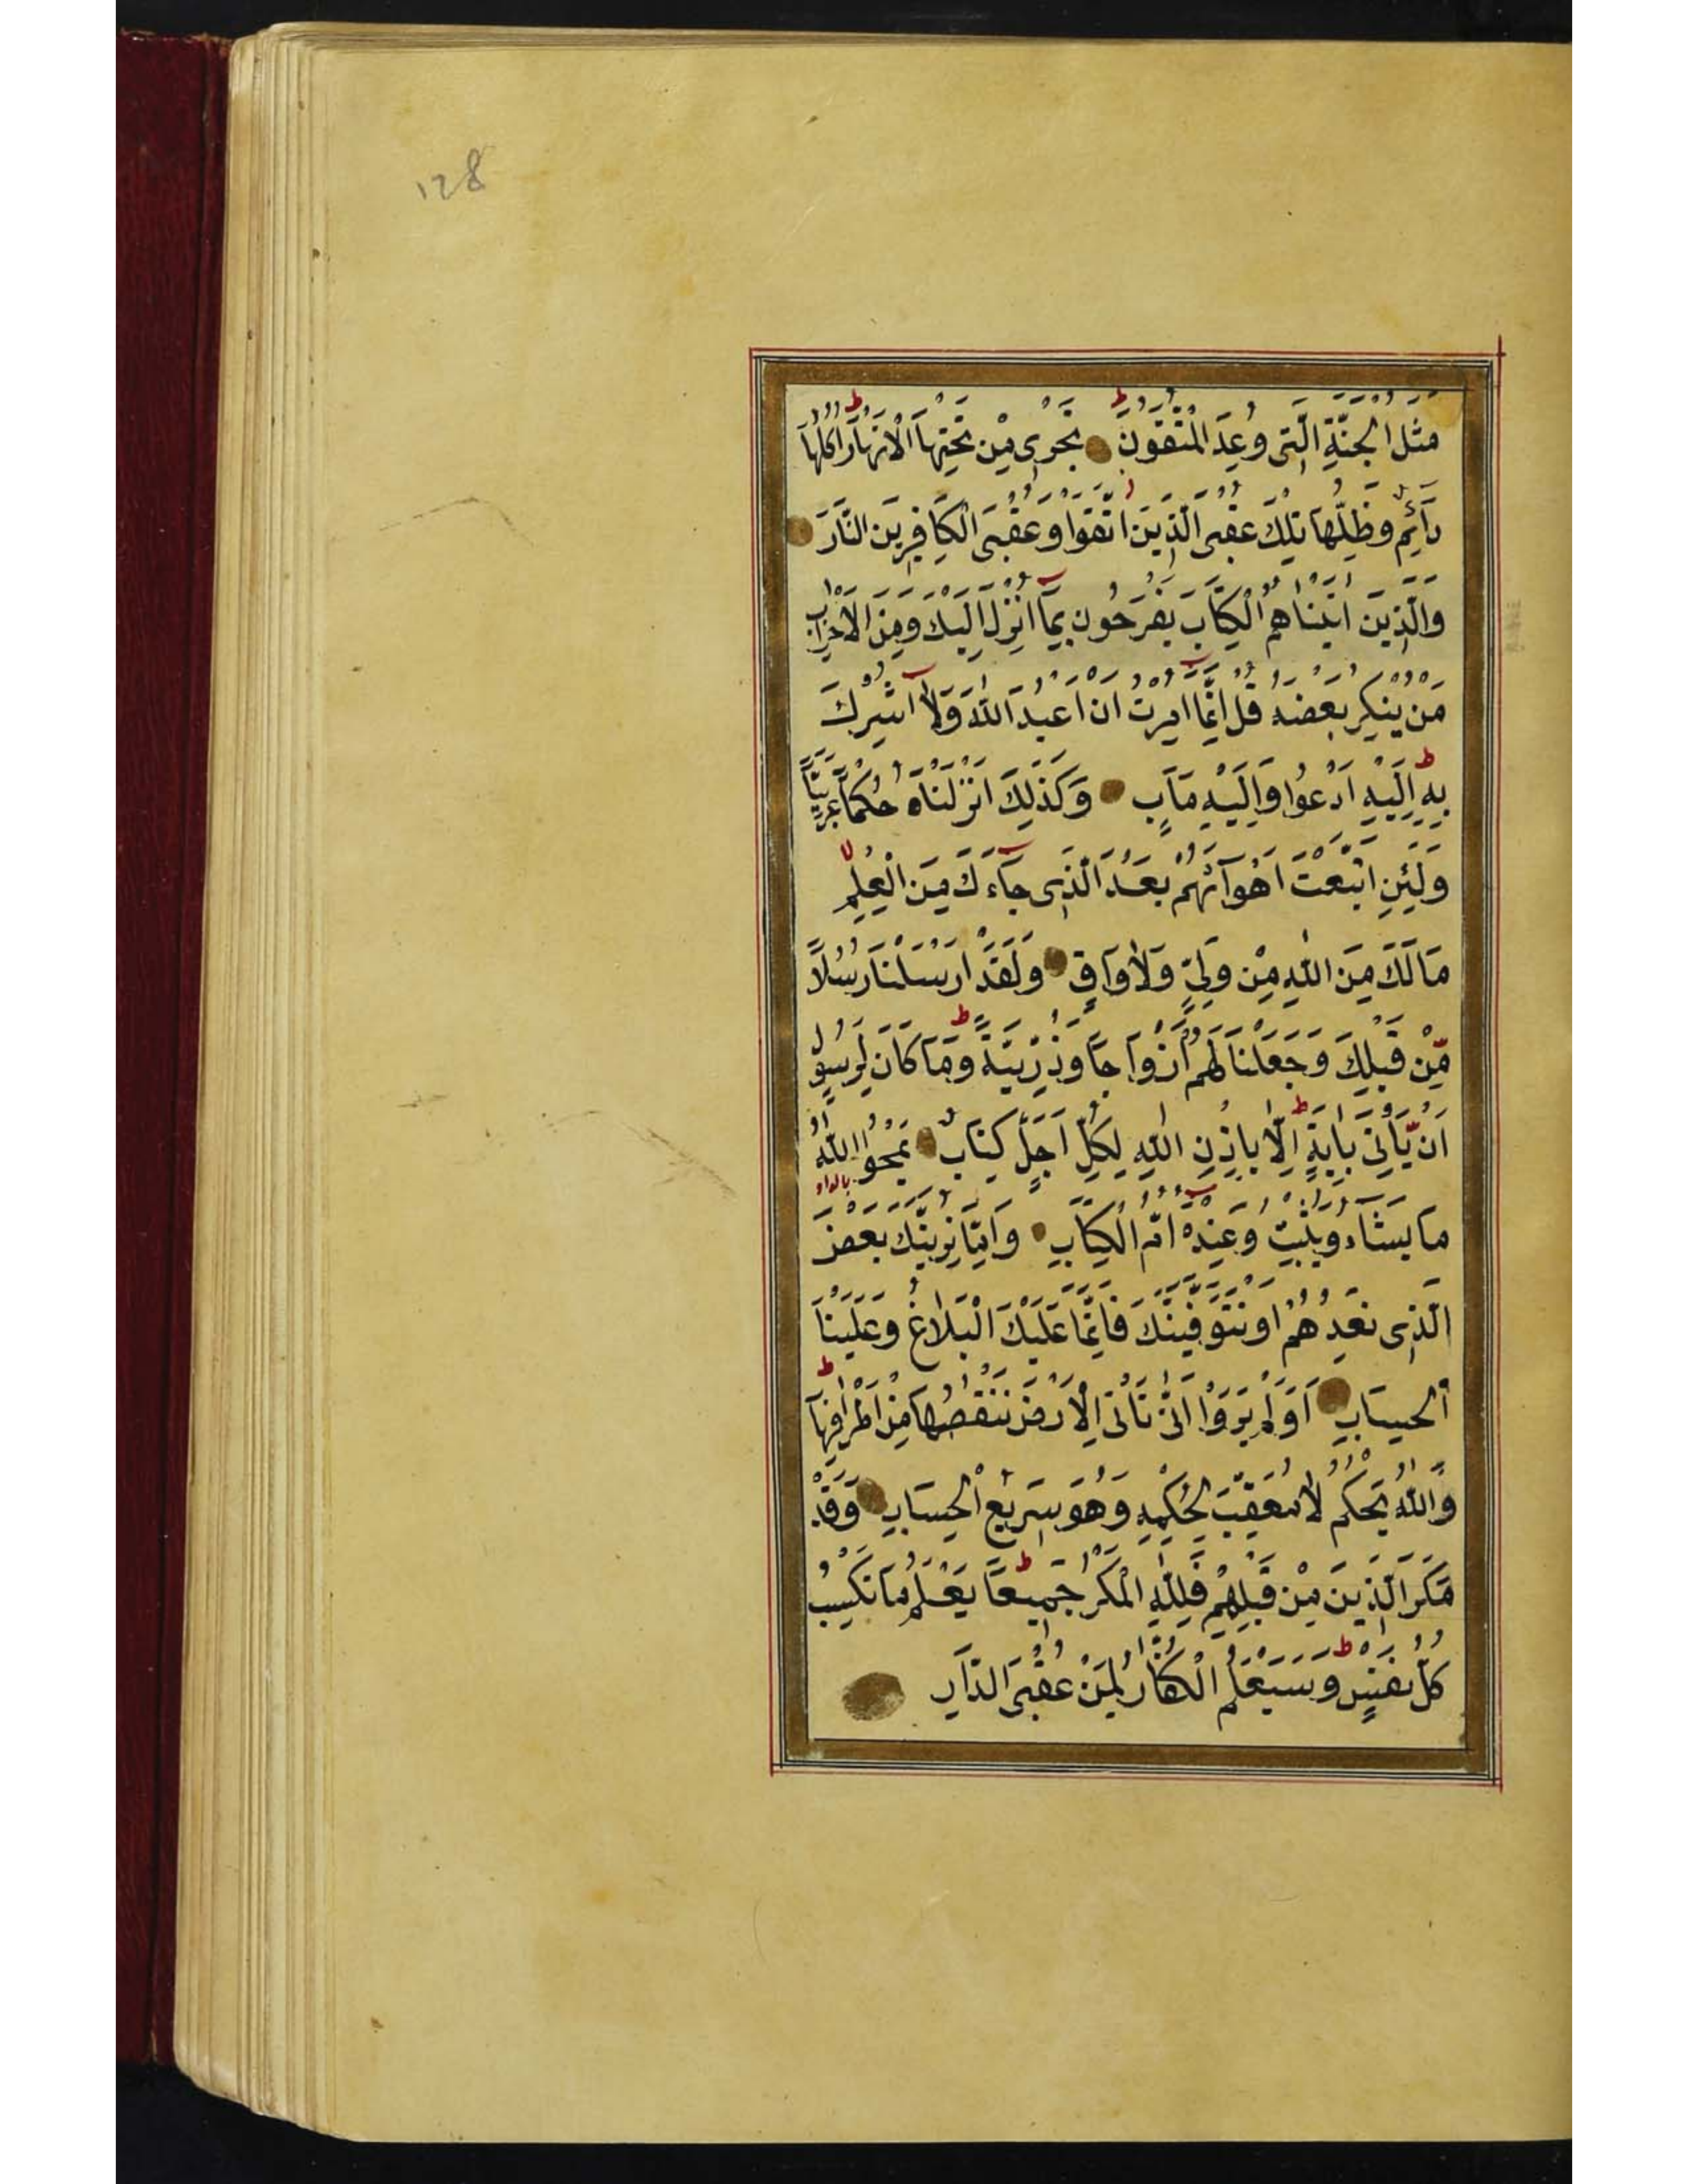 128
مَثَلُ الْجَنَّةِ الَّتِى وُعِدَ الْمُتَّقُونَ تَجْرِى مِنْ تَحْتِهَا الْاَنْهَارُ اُكُلُهَا
دَآئِمٌ وَظِلُّهَا تِلْكَ عُقْبَى الَّذِينَ اتَّقَوْا وَعُقْبَى الْكَافِرِينَ النَّارُ
وَالَّذِينَ اٰتَيْنَاهُمُ الْكِتَابَ يَفْرَحُونَ بِمَآ اُنْزِلَ اِلَيْكَ وَمِنَ الْاَحْزَابِ
مَنْ يُنْكِرُ بَعْضَهُ قُلْ اِنَّمَآ اُمِرْتُ اَنْ اَعْبُدَ اللّٰهَ وَلَآ اُشْرِكَ
بِهِ اِلَيْهِ اَدْعُوا وَاِلَيْهِ مَاٰبِ وَكَذٰلِكَ اَنْزَلْنَاهُ حُكْمًا عَرَبِيًّا
وَلَئِنِ اتَّبَعْتَ اَهْوَآئَهُمْ بَعْدَ الَّذِى جَآءَكَ مِنَ الْعِلْمِ
مَا لَكَ مِنَ اللّٰهِ مِنْ وَلِىٍّ وَلَا وَاقٍ وَلَقَدْ اَرْسَلْنَا رُسُلًا
مِّنْ قَبْلِكَ وَجَعَلْنَا لَهُمْ اَزْوَاجًا وَذُرِّيَّةً وَمَا كَانَ لِرَسُولٍ
اَنْ يَّاْتِىَ بِاٰيَةٍ اِلَّا بِاِذْنِ اللّٰهِ لِكُلِّ اَجَلٍ كِتَابٌ يَمْحُوا اللّٰهُ
بالواو
مَا يَشَآءُ وَيُثْبِتُ وَعِنْدَهٗ اُمُّ الْكِتَابِ وَاِمَّا نُرِيَنَّكَ بَعْضَ
الَّذِى نَعِدُهُمْ اَوْ نَتَوَفَّيَنَّكَ فَاِنَّمَا عَلَيْكَ الْبَلَاغُ وَعَلَيْنَا
الْحِسَابِ اَوَلَمْ يَرَوْا اَنَّا نَاْتِى الْاَرْضَ نَنْقُصُهَا مِنْ اَطْرَافِهَا
وَاللّٰهُ يَحْكُمُ لَا مُعَقِّبَ لِحُكْمِهِ وَهُوَ سَرِيعُ الْحِسَابِ وَقَدْ
مَكَرَ الَّذِينَ مِنْ قَبْلِهِمْ فَلِلّٰهِ الْمَكْرُ جَمِيعًا يَعْلَمُ مَا تَكْسِبُ
كُلُّ نَفْسٍ وَسَيَعْلَمُ الْكُفَّارُ لِمَنْ عُقْبَى الدَّارِ